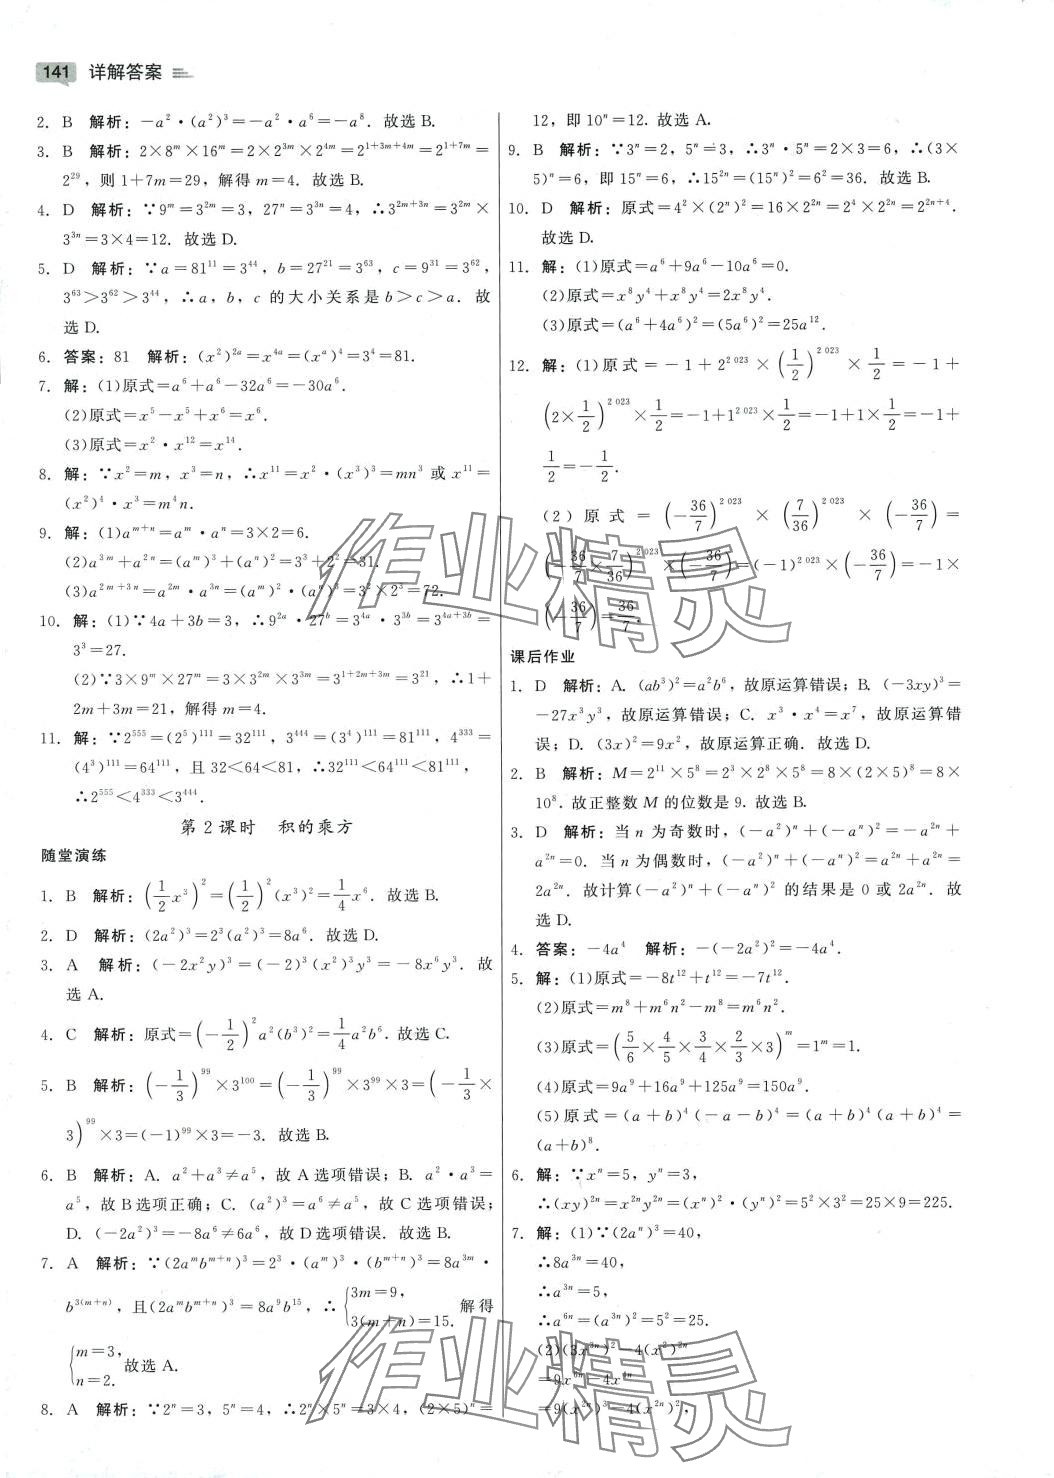 141 详解答案
2. B 解析：-a²·(a²)³=-a²·a⁶=-a⁸. 故选 B.
3. B 解析：2×8^m×16^m=2×2^{3m}×2^{4m}=2^{1+3m+4m}=2^{1+7m}=
2^{29}，则 1+7m=29，解得 m=4. 故选 B.
4. D 解析：∵9^m=3^{2m}=3，27^n=3^{3n}=4，∴3^{2m+3n}=3^{2m}×
3^{3n}=3×4=12. 故选 D.
5. D 解析：∵a=81^{11}=3^{44}，b=27^{21}=3^{63}，c=9^{31}=3^{62}，
3^{63}>3^{62}>3^{44}，∴a，b，c 的大小关系是 b>c>a. 故
选 D.
6. 答案：81 解析：(x²)^{2a}=x^{4a}=(x^a)⁴=3⁴=81.
7. 解：(1)原式=a⁶+a⁶-32a⁶=-30a⁶.
(2)原式=x⁵-x⁵+x⁶=x⁶.
(3)原式=x²·x^{12}=x^{14}.
8. 解：∵x²=m，x³=n，∴x^{11}=x²·(x³)³=mn³ 或 x^{11}=
(x²)⁴·x³=m⁴n.
9. 解：(1)a^{m+n}=a^m·a^n=3×2=6.
(2)a^{3m}+a^{2n}=(a^m)³+(a^n)²=3³+2²=31.
(3)a^{2m+3n}=a^{2m}·a^{3n}=(a^m)²·(a^n)³=3²×2³=72.
10. 解：(1)∵4a+3b=3，∴9^{2a}·27^b=3^{4a}·3^{3b}=3^{4a+3b}=
3³=27.
(2)∵3×9^m×27^m=3×3^{2m}×3^{3m}=3^{1+2m+3m}=3^{21}，∴1+
2m+3m=21，解得 m=4.
11. 解：∵2^{555}=(2⁵)^{111}=32^{111}，3^{444}=(3⁴)^{111}=81^{111}，4^{333}=
(4³)^{111}=64^{111}，且 32<64<81，∴32^{111}<64^{111}<81^{111}，
∴2^{555}<4^{333}<3^{444}.
第 2 课时 积的乘方
随堂演练
1. B 解析：(1/2 x³)²=(1/2)²(x³)²=1/4 x⁶. 故选 B.
2. D 解析：(2a²)³=2³(a²)³=8a⁶. 故选 D.
3. A 解析：(-2x²y)³=(-2)³(x²)³y³=-8x⁶y³. 故
选 A.
4. C 解析：原式=(-1/2)²a²(b³)²=1/4 a²b⁶. 故选 C.
5. B 解析：(-1/3)^{99}×3^{100}=(-1/3)^{99}×3^{99}×3=(-1/3×
3)^{99}×3=(-1)^{99}×3=-3. 故选 B.
6. B 解析：A. a²+a³≠a⁵，故 A 选项错误；B. a²·a³=
a⁵，故 B 选项正确；C. (a²)³=a⁶≠a⁵，故 C 选项错误；
D. (-2a²)³=-8a⁶≠6a⁶，故 D 选项错误. 故选 B.
7. A 解析：∵(2a^m b^{m+n})³=2³·(a^m)³·(b^{m+n})³=8a^{3m}·
b^{3(m+n)}，且(2a^m b^{m+n})³=8a⁹b^{15}，∴{3m=9，3(m+n)=15. 解得
{m=3，n=2. 故选 A.
8. A 解析：∵2^n=3，5^n=4，∴2^n×5^n=3×4，(2×5)^n=
12，即 10^n=12. 故选 A.
9. B 解析：∵3^n=2，5^n=3，∴3^n·5^n=2×3=6，∴(3×
5)^n=6，即 15^n=6，∴15^{2n}=(15^n)²=6²=36. 故选 B.
10. D 解析：原式=4²×(2^n)²=16×2^{2n}=2⁴×2^{2n}=2^{2n+4}.
故选 D.
11. 解：(1)原式=a⁶+9a⁶-10a⁶=0.
(2)原式=x⁸y⁴+x⁸y⁴=2x⁸y⁴.
(3)原式=(a⁶+4a⁶)²=(5a⁶)²=25a^{12}.
12. 解：(1)原式=-1+2^{2 023}×(1/2)^{2 023}×1/2=-1+
(2×1/2)^{2 023}×1/2=-1+1^{2 023}×1/2=-1+1×1/2=-1+
1/2=-1/2.
(2)原式=(-36/7)^{2 023}×(7/36)^{2 023}×(-36/7)=
(-36/7×7/36)^{2 023}×(-36/7)=(-1)^{2 023}×(-36/7)=-1×
(-36/7)=36/7.
课后作业
1. D 解析：A. (ab³)²=a²b⁶，故原运算错误；B. (-3xy)³=
-27x³y³，故原运算错误；C. x³·x⁴=x⁷，故原运算错
误；D. (3x)²=9x²，故原运算正确. 故选 D.
2. B 解析：M=2^{11}×5⁸=2³×2⁸×5⁸=8×(2×5)⁸=8×
10⁸. 故正整数 M 的位数是 9. 故选 B.
3. D 解析：当 n 为奇数时，(-a²)^n+(-a^n)²=-a^{2n}+
a^{2n}=0. 当 n 为偶数时，(-a²)^n+(-a^n)²=a^{2n}+a^{2n}=
2a^{2n}. 故计算(-a²)^n+(-a^n)² 的结果是 0 或 2a^{2n}. 故
选 D.
4. 答案：-4a⁴ 解析：-(-2a²)²=-4a⁴.
5. 解：(1)原式=-8t^{12}+t^{12}=-7t^{12}.
(2)原式=m⁸+m⁶n²-m⁸=m⁶n².
(3)原式=(5/6×4/5×3/4×2/3×3)^m=1^m=1.
(4)原式=9a⁹+16a⁹+125a⁹=150a⁹.
(5)原式=(a+b)⁴(-a-b)⁴=(a+b)⁴(a+b)⁴=
(a+b)⁸.
6. 解：∵x^n=5，y^n=3，
∴(xy)^{2n}=x^{2n}y^{2n}=(x^n)²·(y^n)²=5²×3²=25×9=225.
7. 解：(1)∵(2a^n)³=40，
∴8a^{3n}=40，
∴a^{3n}=5，
∴a^{6n}=(a^{3n})²=5²=25.
(2)(3x^{3n})²-4(x²)^{3n}
=9x^{6n}-4x^{6n}
=9(x^{2n})³-4(x^{2n})³，
作业精灵
作业精灵